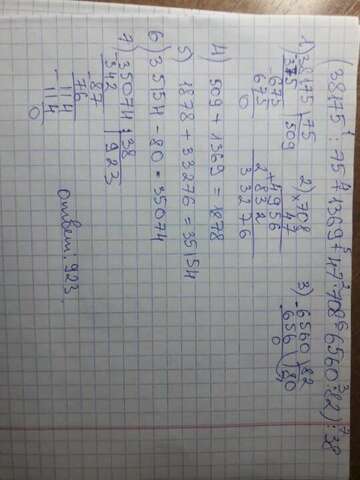 (38175 : 75 + 1369 + 47 · 708 - 6560 : 82) : 38
1) 38175 | 75
375 | 509
675
675
0
2) × 708
47
+ 4956
2832
33276
3) - 6560 | 82
656 | 80
0
4) 509 + 1369 = 1878
5) 1878 + 33276 = 35154
6) 35154 - 80 = 35074
7) 35074 | 38
342 | 923
87
76
114
114
0
Ответ: 923.